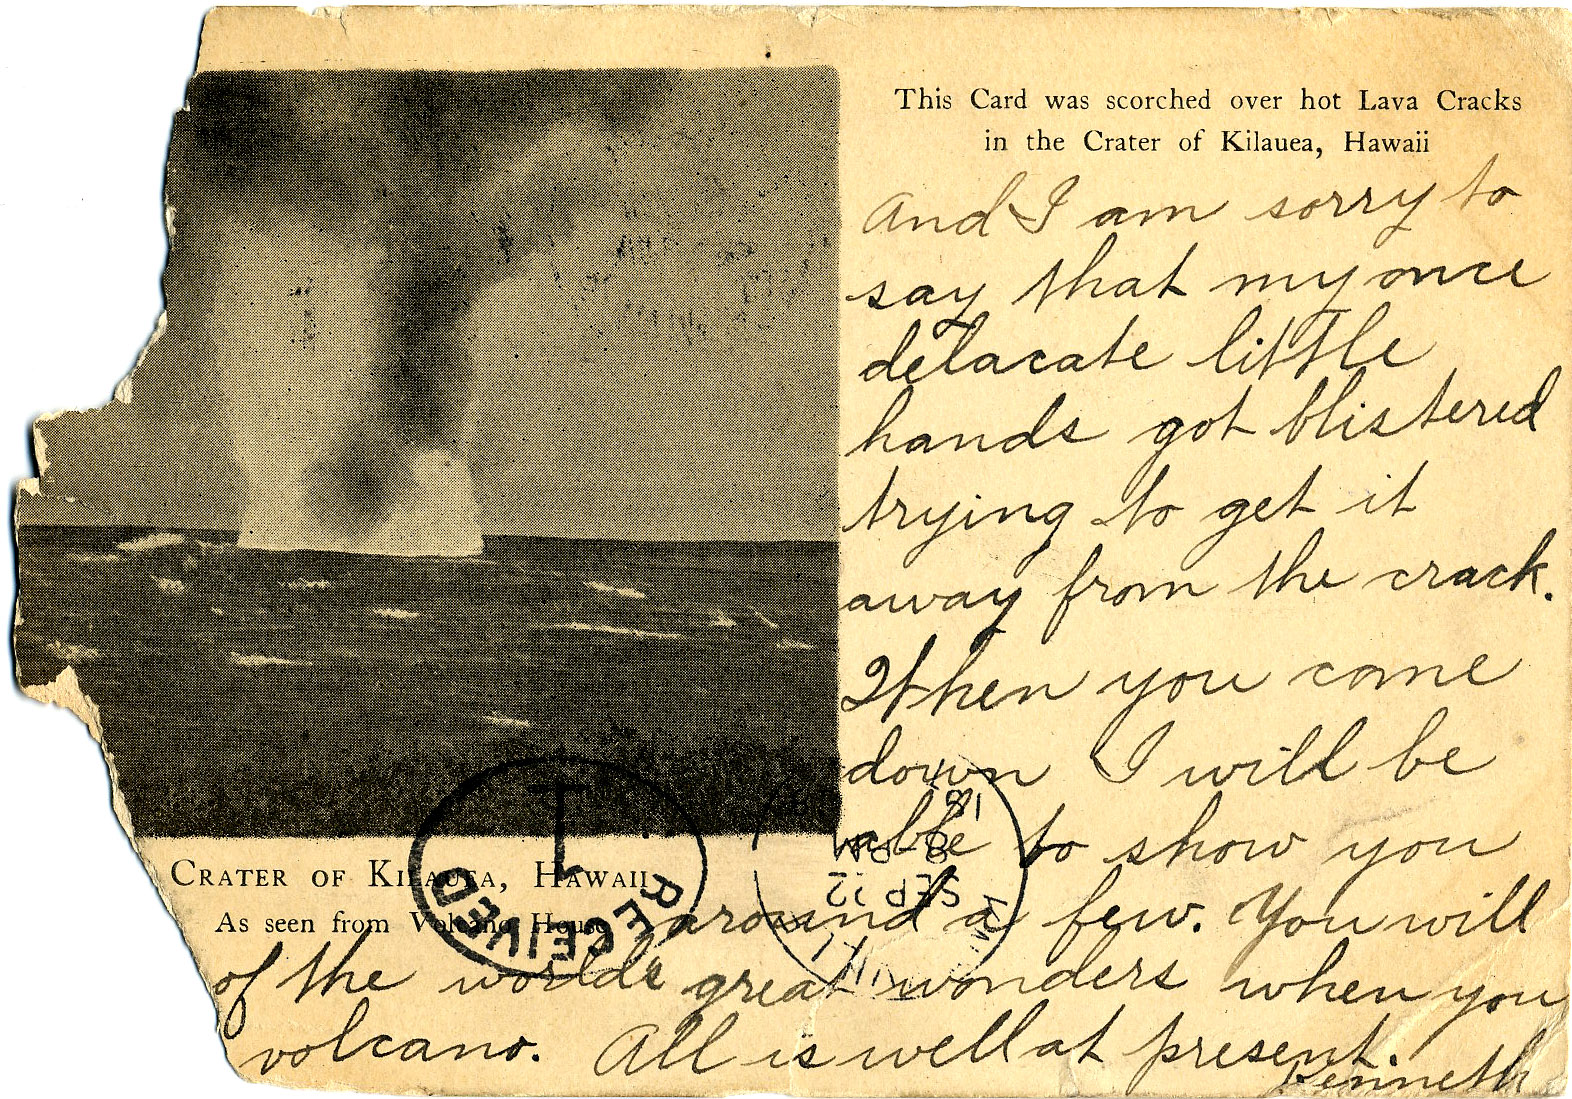 This Card was scorched over hot Lava Cracks
in the Crater of Kilauea, Hawaii
And I am sorry to
say that my once
delacate little
hands got blistered
trying to get it
away from the crack.
When you come
down I will be
able to show you
around a few. You will
of the world's great wonders when you
volcano. All is well at present.
Kenneth
CRATER OF KILAUEA, HAWAII
As seen from Volcano House
RECEIVED
1
SEP 12
8-PM